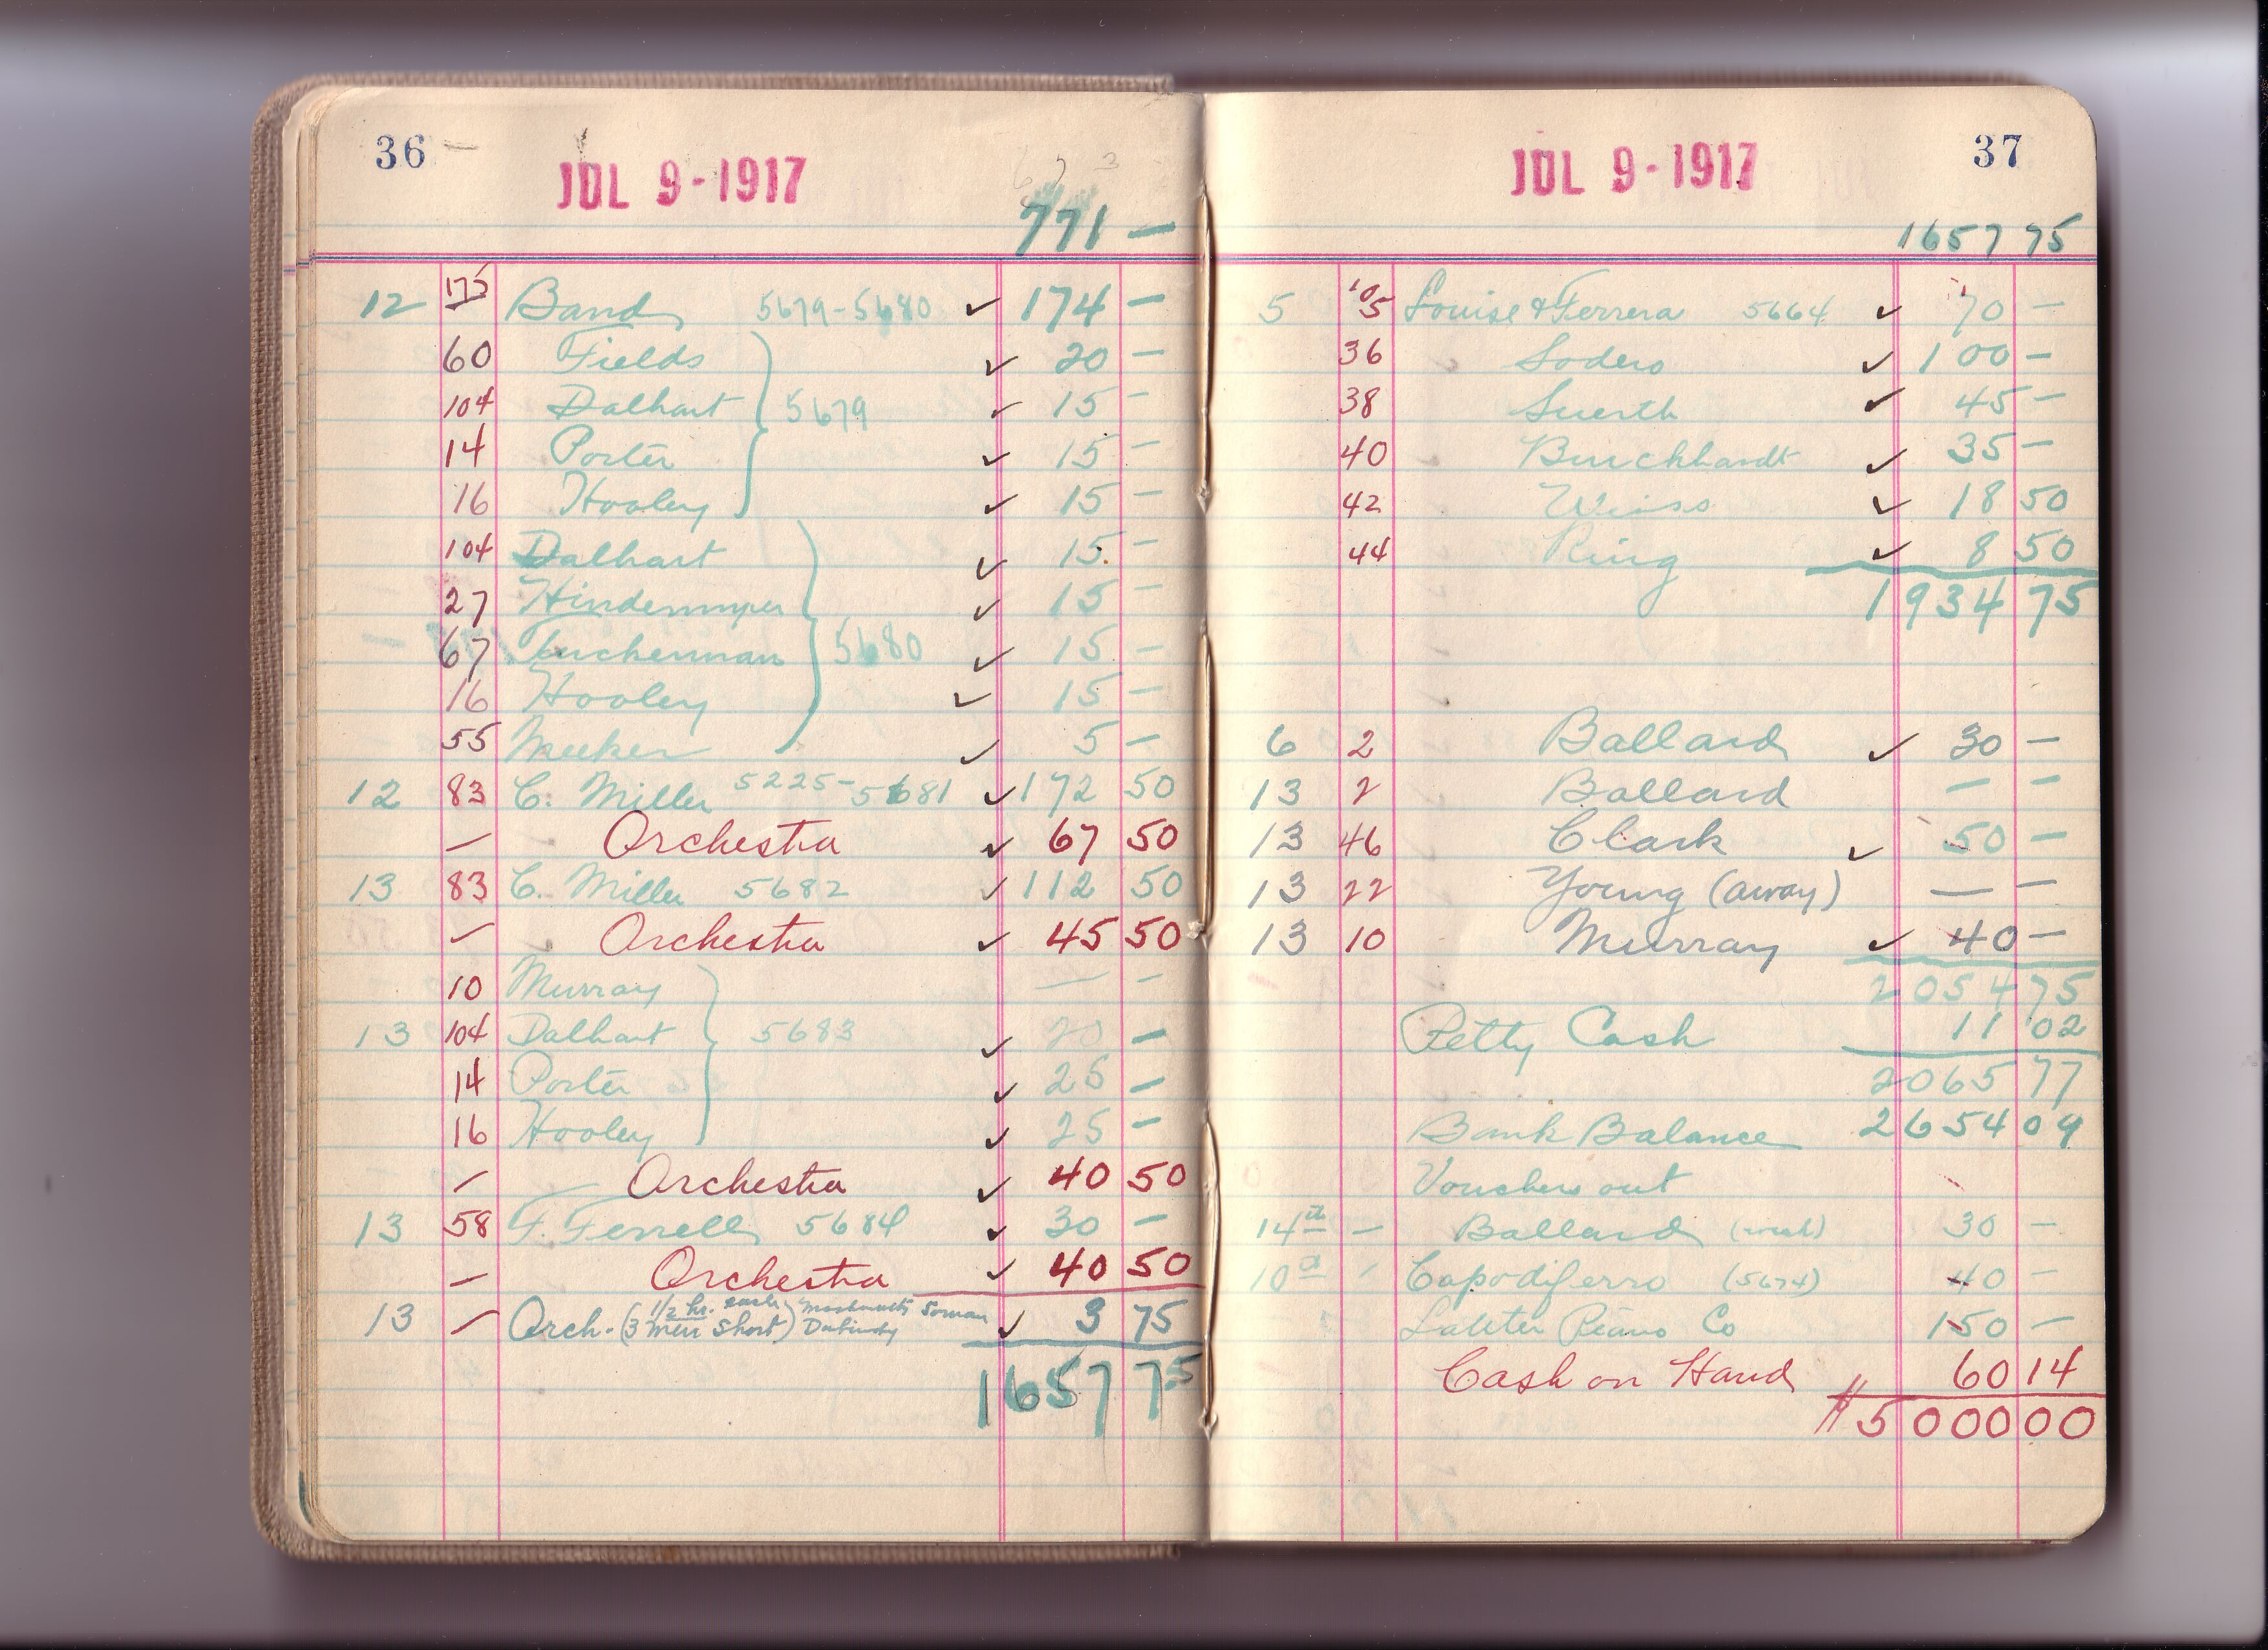 36 —
JUL 9 - 1917
771 —
12 175 Band 5679-5680 ✓ 174 —
60 Fields ✓ 20 —
104 Dalhart } 5679 ✓ 15 —
14 Porter ✓ 15 —
16 Hooley ✓ 15 —
104 Dalhart ✓ 15 —
27 Hindermyer ✓ 15 —
67 Tuckerman } 5680 ✓ 15 —
16 Hooley ✓ 15 —
55 Meeker ✓ 5 —
12 83 C. Miller 5225-5681 ✓ 172 50
— Orchestra ✓ 67 50
13 83 C. Miller 5682 ✓ 112 50
— Orchestra ✓ 45 50
10 Murray — —
13 104 Dalhart } 5683 ✓ 20 —
14 Porter ✓ 25 —
16 Hooley ✓ 25 —
— Orchestra ✓ 40 50
13 58 F. Ferrell 5684 ✓ 30 —
— Orchestra ✓ 40 50
13 — Orch. (1/2 hr. each 3 men short) ✓ 3 75
1657 75
JUL 9 - 1917
37
1657 75
5 105 Louise & Ferrera 5664 ✓ 70 —
36 Sodero ✓ 100 —
38 Suerth ✓ 45 —
40 Burckhardt ✓ 35 —
42 Weiss ✓ 18 50
44 King ✓ 8 50
1934 75
6 2 Ballard ✓ 30 —
13 2 Ballard — —
13 46 Clark ✓ 50 —
13 22 Young (away) — —
13 10 Murray ✓ 40 —
2054 75
Petty Cash 11 02
2065 77
Bank Balance 2654 09
Vouchers out
14th — Ballard (week) 30 —
10th Capodiferro (5674) 40 —
Lauter Piano Co 150 —
Cash on Hand 60 14
$5000 00